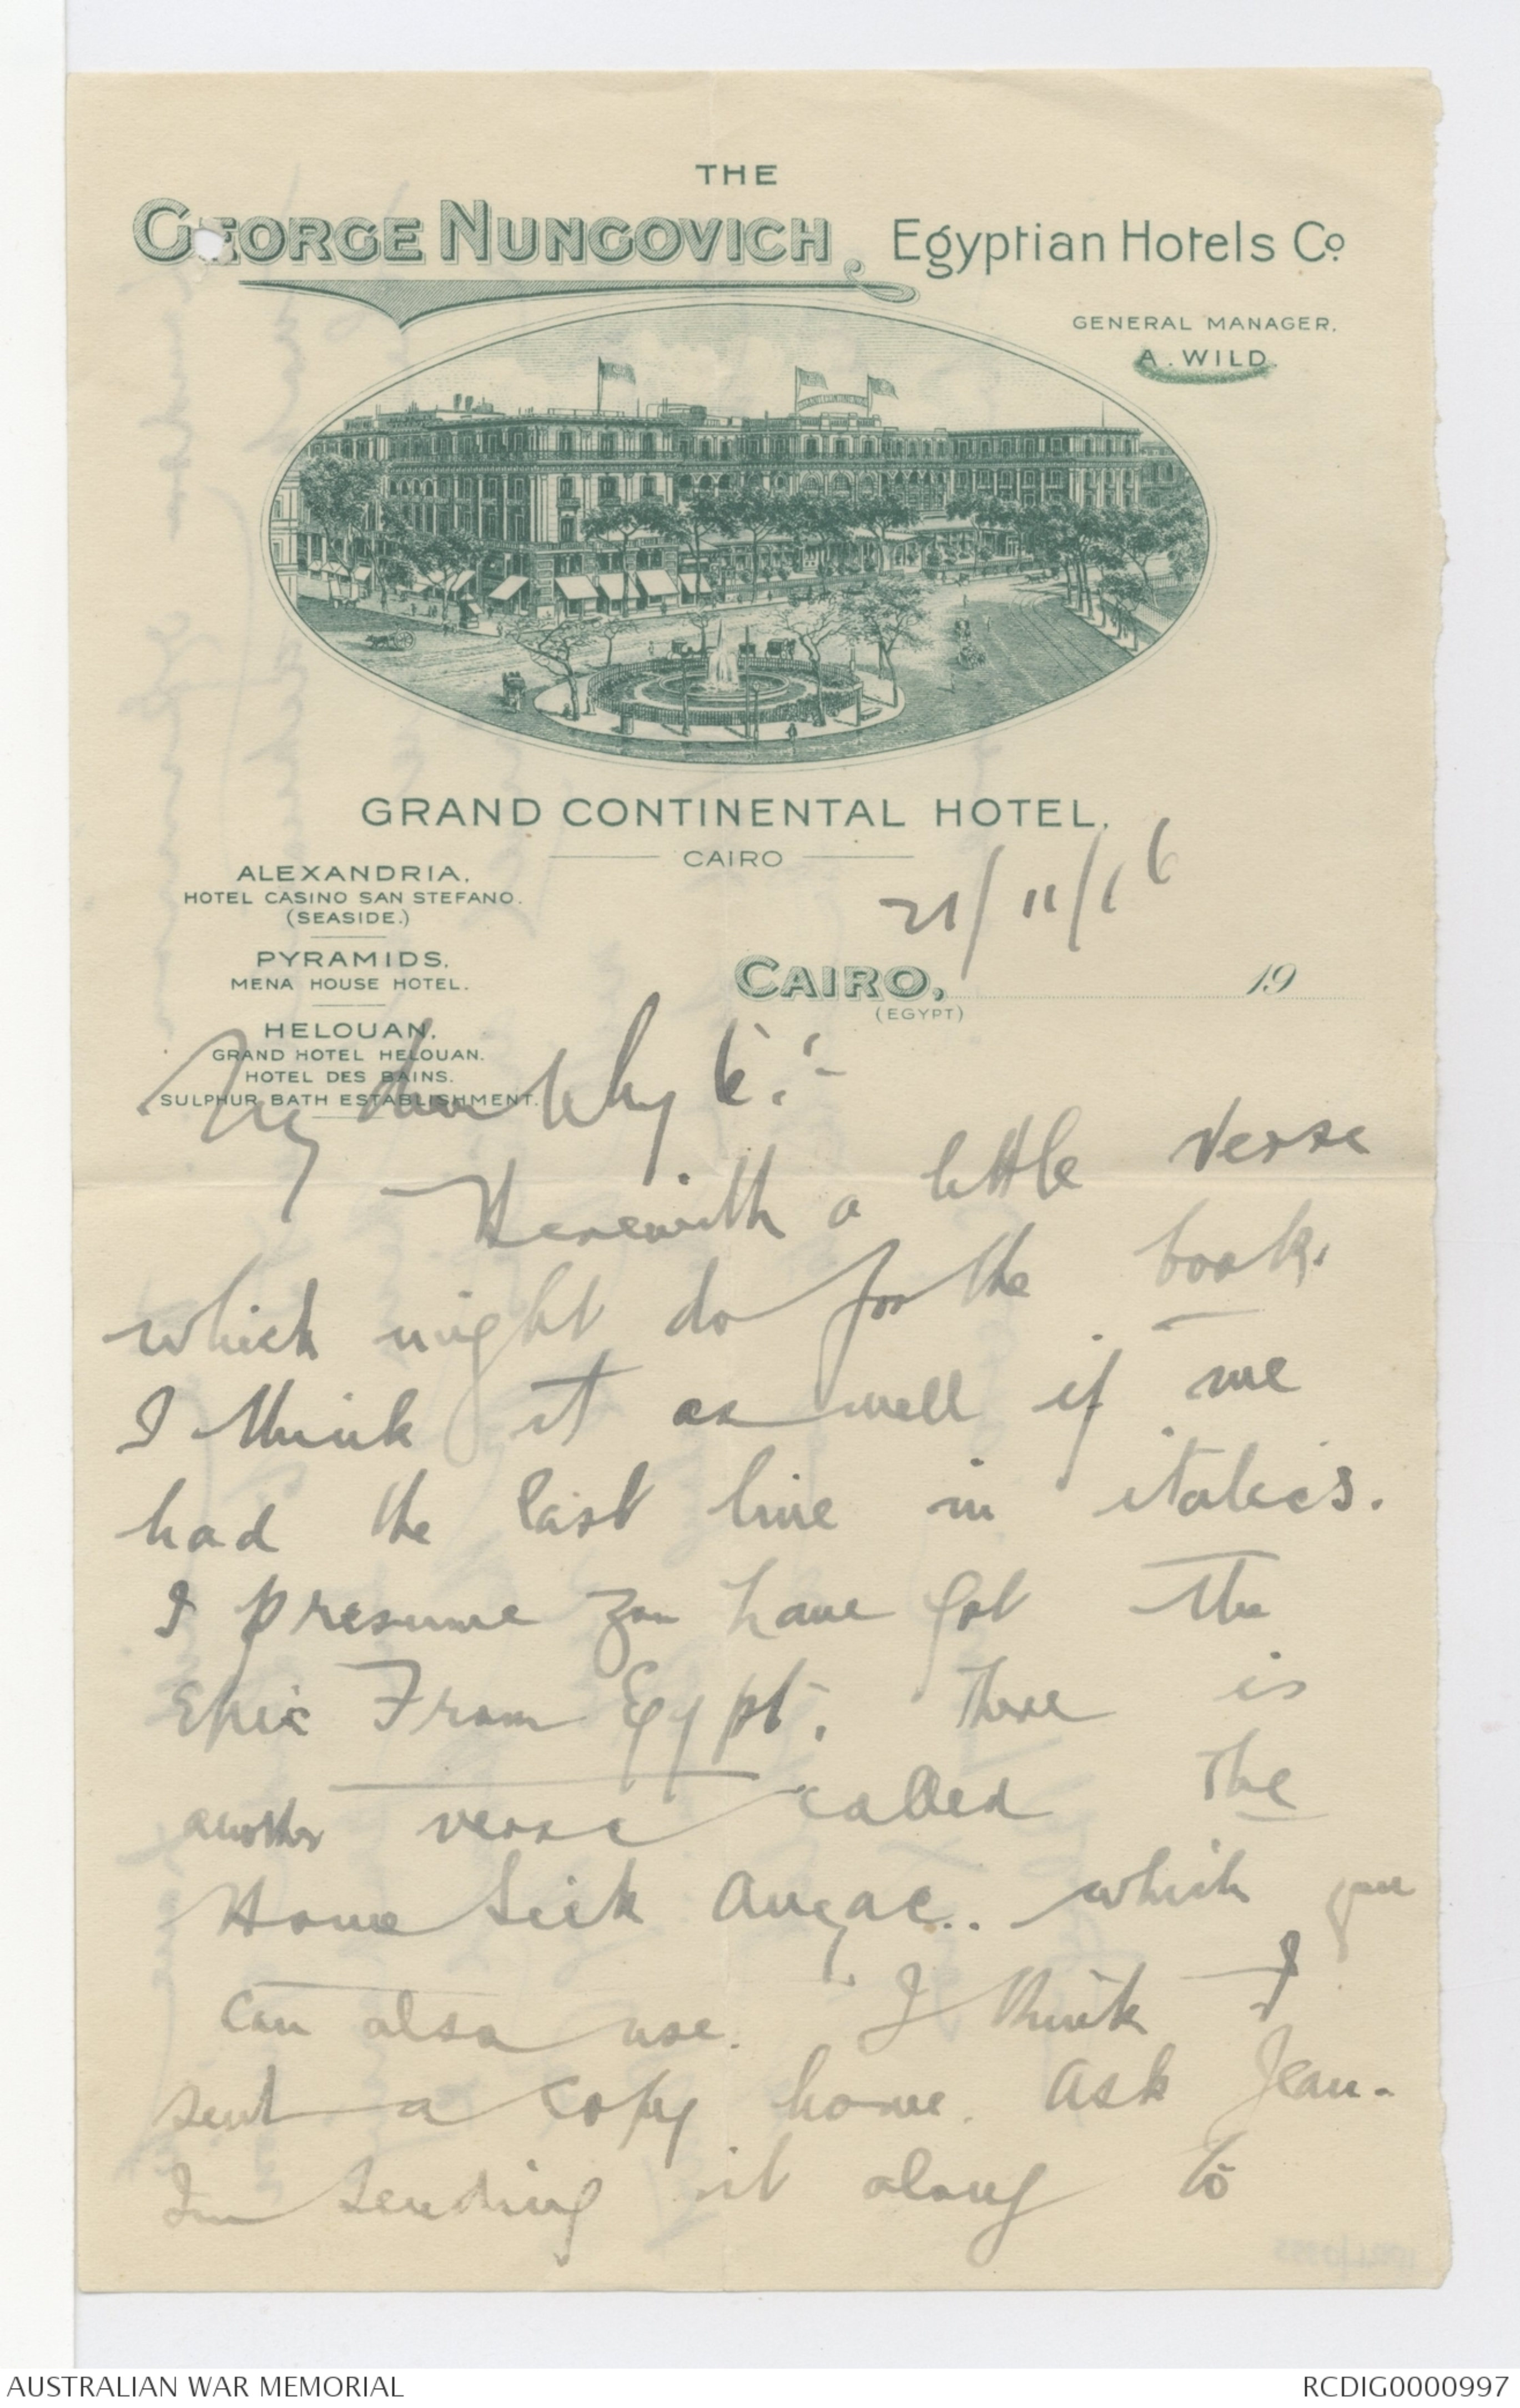 THE
GEORGE NUNGOVICH Egyptian Hotels Co.
GENERAL MANAGER.
A. WILD.
GRAND CONTINENTAL HOTEL.
CAIRO
ALEXANDRIA.
HOTEL CASINO SAN STEFANO.
(SEASIDE.)
PYRAMIDS.
MENA HOUSE HOTEL.
HELOUAN.
GRAND HOTEL HELOUAN.
HOTEL DES BAINS.
SULPHUR BATH ESTABLISHMENT.
21/11/16
CAIRO, 19
(EGYPT)
My dear Whyte:-
Herewith a little verse
which might do for the book.
I think it as well if we
had the last line in italics.
I presume you have got the
Epic From Egypt. There is
another verse called The
Home Sick Anzac.. which you
can also use. I think I
sent a copy home. Ask Jean.
Im sending it along to
AUSTRALIAN WAR MEMORIAL
RCDIG0000997